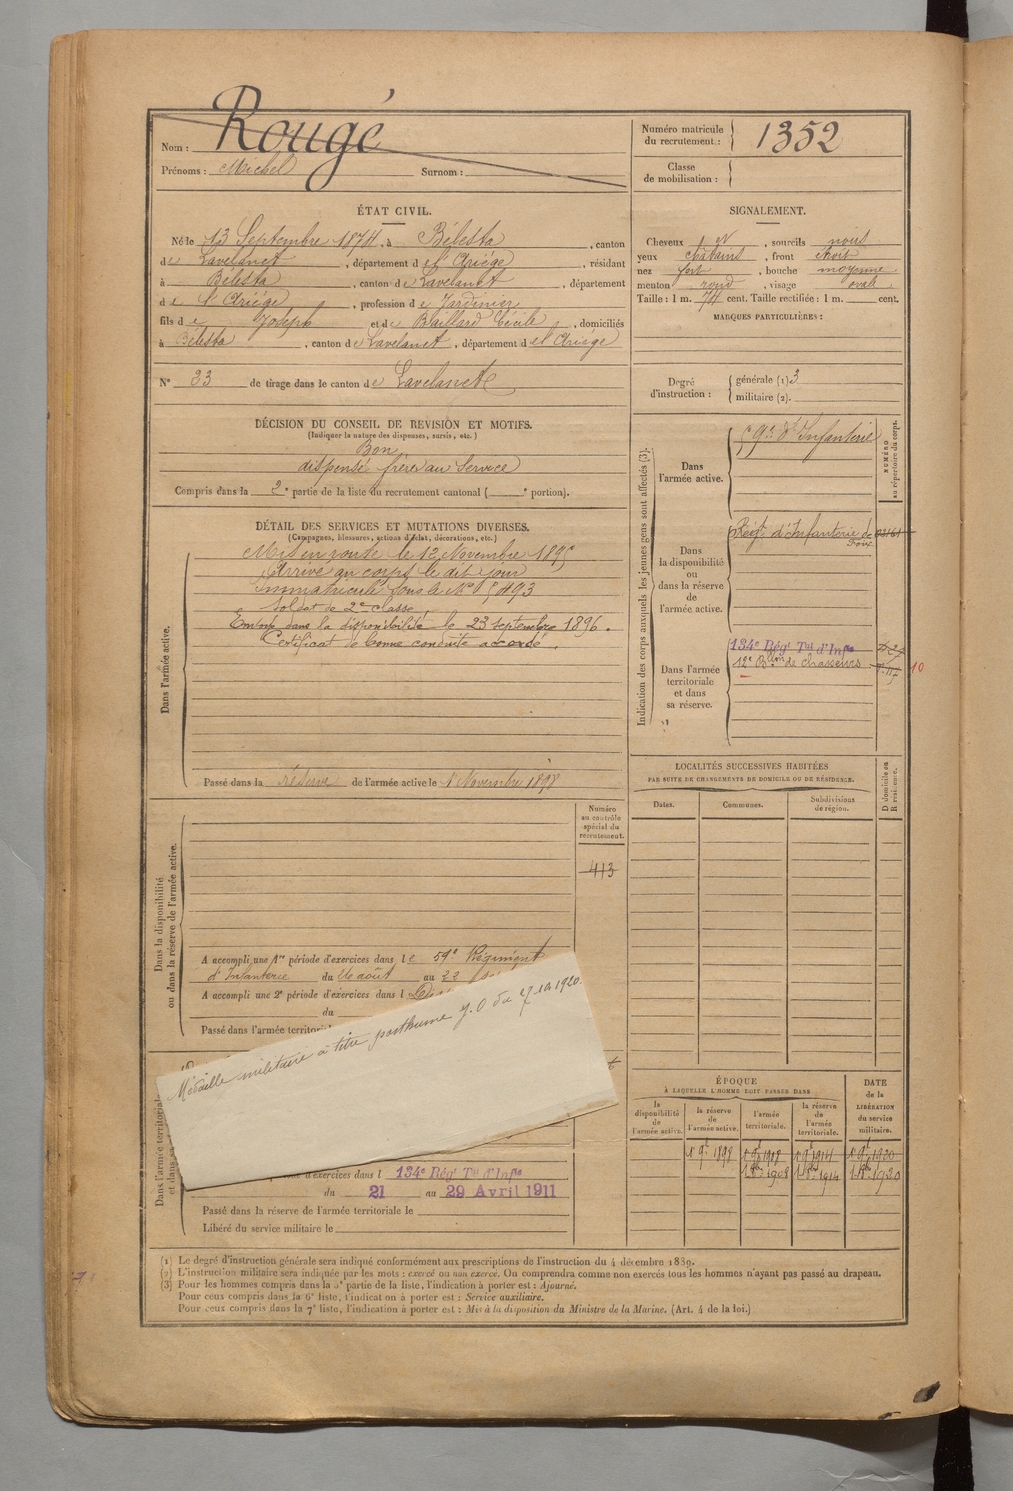 Rougé
Nom :
Prénoms : Michel Surnom :
Numéro matricule du recrutement : 1352
Classe de mobilisation :
ÉTAT CIVIL.
Né le 13 Septembre 1874, à Bélesta, canton
de Lavelanet, département de l'Ariège, résidant
à Bélesta, canton de Lavelanet, département
de l'Ariège, profession de Jardinier
fils de Joseph et de Baillard Cécile, domiciliés
à Bélesta, canton de Lavelanet, département de l'Ariège
N° 33 de tirage dans le canton de Lavelanet
SIGNALEMENT.
Cheveux et, sourcils noirs
yeux châtains, front étroit
nez fort, bouche moyenne
menton rond, visage ovale
Taille : 1 m. 74 cent. Taille rectifiée : 1 m. cent.
MARQUES PARTICULIÈRES :
Degré d'instruction : générale (1) 3
militaire (2).
DÉCISION DU CONSEIL DE REVISION ET MOTIFS.
(Indiquer la nature des dispenses, sursis, etc.)
Bon
dispensé frère au Service
Compris dans la 2e partie de la liste du recrutement cantonal ( e portion).
DÉTAIL DES SERVICES ET MUTATIONS DIVERSES.
(Campagnes, blessures, actions d'éclat, décorations, etc.)
Dans l'armée active.
Mis en route le 12 Novembre 1895
Arrivé au corps le dit jour
Immatriculé sous le N°
Soldat de 2e classe.
Envoyé dans la disponibilité le 23 septembre 1896.
Certificat de bonne conduite accordé.
Passé dans la réserve de l'armée active le 1er Novembre 1898
Indication des corps auxquels les jeunes gens sont affectés (3).
NUMÉRO au répertoire du corps.
Dans l'armée active.
59e d'Infanterie
Dans la disponibilité ou dans la réserve de l'armée active.
Régt d'Infanterie de Foix
Dans l'armée territoriale et dans sa réserve.
134e Régt Tal d'Infie
12e Blon de chasseurs
10
LOCALITÉS SUCCESSIVES HABITÉES
PAR SUITE DE CHANGEMENTS DE DOMICILE OU DE RÉSIDENCE.
D domicile ou R résidence.
Dates. Communes. Subdivisions de région.
Dans la disponibilité ou dans la réserve de l'armée active.
Numéro au contrôle spécial du recrutement.
413
A accompli une 1re période d'exercices dans le 59e Régiment
d'Infanterie du 26 août au 22
A accompli une 2e période d'exercices dans l
du
Passé dans l'armée territori
Médaille militaire à titre posthume J.O du
Dans l'armée territoriale
d'exercices dans l 134e Régt Tal d'Infie
du 21 au 29 Avril 1911
Passé dans la réserve de l'armée territoriale le
Libéré du service militaire le
ÉPOQUE
À LAQUELLE L'HOMME DOIT PASSER DANS
la disponibilité de l'armée active.
la réserve de l'armée active.
l'armée territoriale.
la réserve de l'armée territoriale.
DATE de la LIBÉRATION du service militaire.
1898
1908 1914 1920
(1) Le degré d'instruction générale sera indiqué conformément aux prescriptions de l'instruction du 4 décembre 1889.
(2) L'instruction militaire sera indiquée par les mots : exercé ou non exercé. On comprendra comme non exercés tous les hommes n'ayant pas passé au drapeau.
(3) Pour les hommes compris dans la 5e partie de la liste, l'indication à porter est : Ajourné.
Pour ceux compris dans la 6e liste, l'indication à porter est : Service auxiliaire.
Pour ceux compris dans la 7e liste, l'indication à porter est : Mis à la disposition du Ministre de la Marine. (Art. 4 de la loi.)